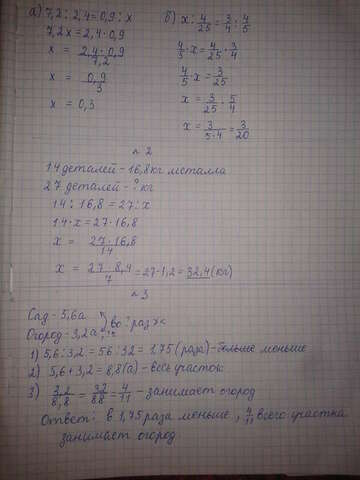 а) 7,2 : 2,4 = 0,9 : х
7,2х = 2,4 · 0,9
х = 2,4 · 0,9 / 7,2
х = 0,9 / 3
х = 0,3
б) х : 4/25 = 3/4 : 4/5
4/5 · х = 4/25 · 3/4
4/5 · х = 3/25
х = 3/25 : 5/4
х = 3/5·4 = 3/20
№2
14 деталей - 16,8 кг металла
27 деталей - ? кг
14 : 16,8 = 27 : х
14 · х = 27 · 16,8
х = 27 · 16,8 / 14
х = 27 · 8,4 / 7 = 27 · 1,2 = 32,4 (кг)
№3
Сад - 5,6а
Огород - 3,2а во ? раз <
1) 5,6 : 3,2 = 56 : 32 = 1,75 (раза) - больше меньше
2) 5,6 + 3,2 = 8,8 (а) - весь участок
3) 3,2/8,8 = 32/88 = 4/11 - занимает огород
Ответ: в 1,75 раза меньше, 4/11 всего участка
занимает огород